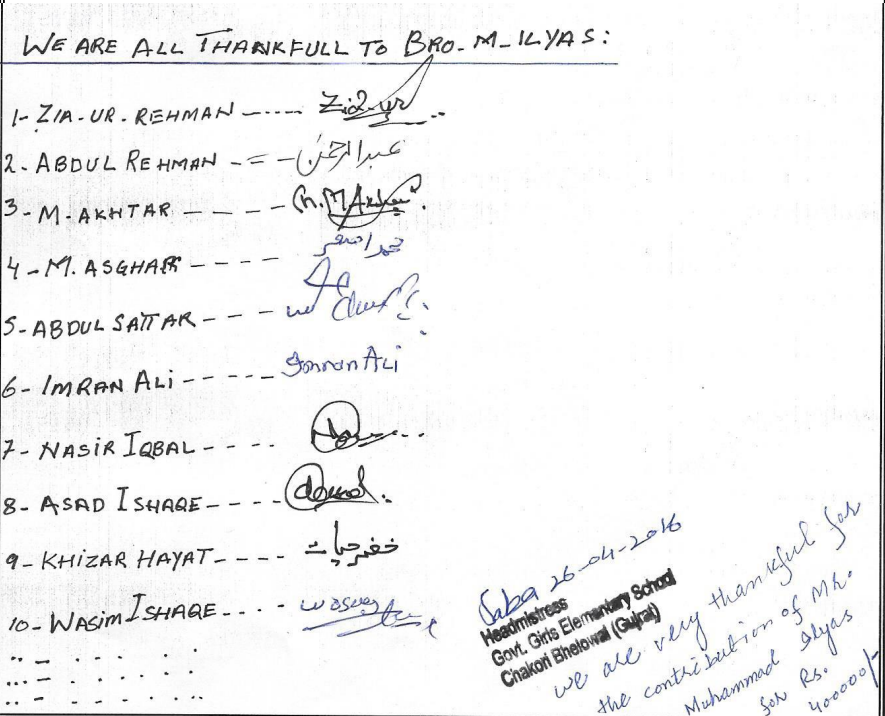 WE ARE ALL THANKFULL TO BRO-M-ILYAS:
1- ZIA-UR-REHMAN ------ Zia-ur
2- ABDUL REHMAN - = - عبدالرحمٰن
3- M-AKHTAR ------ M. Akhtar
4- M. ASGHAR ----- محمد اصغر
5- ABDUL SATTAR ----
6- IMRAN ALI ------ Imran Ali
7- NASIR IQBAL -----
8- ASAD ISHAQE ----
9- KHIZAR HAYAT ---- خضر حیات
10- WASIM ISHAQE ----
Saba 26-04-2016
Headmistress
Govt. Girls Elementary School
Chakori Bhelowal (Gujrat)
we are very thankful for for
the contribution of Mr.
Muhammad Ilyas
for Rs.
400000/-